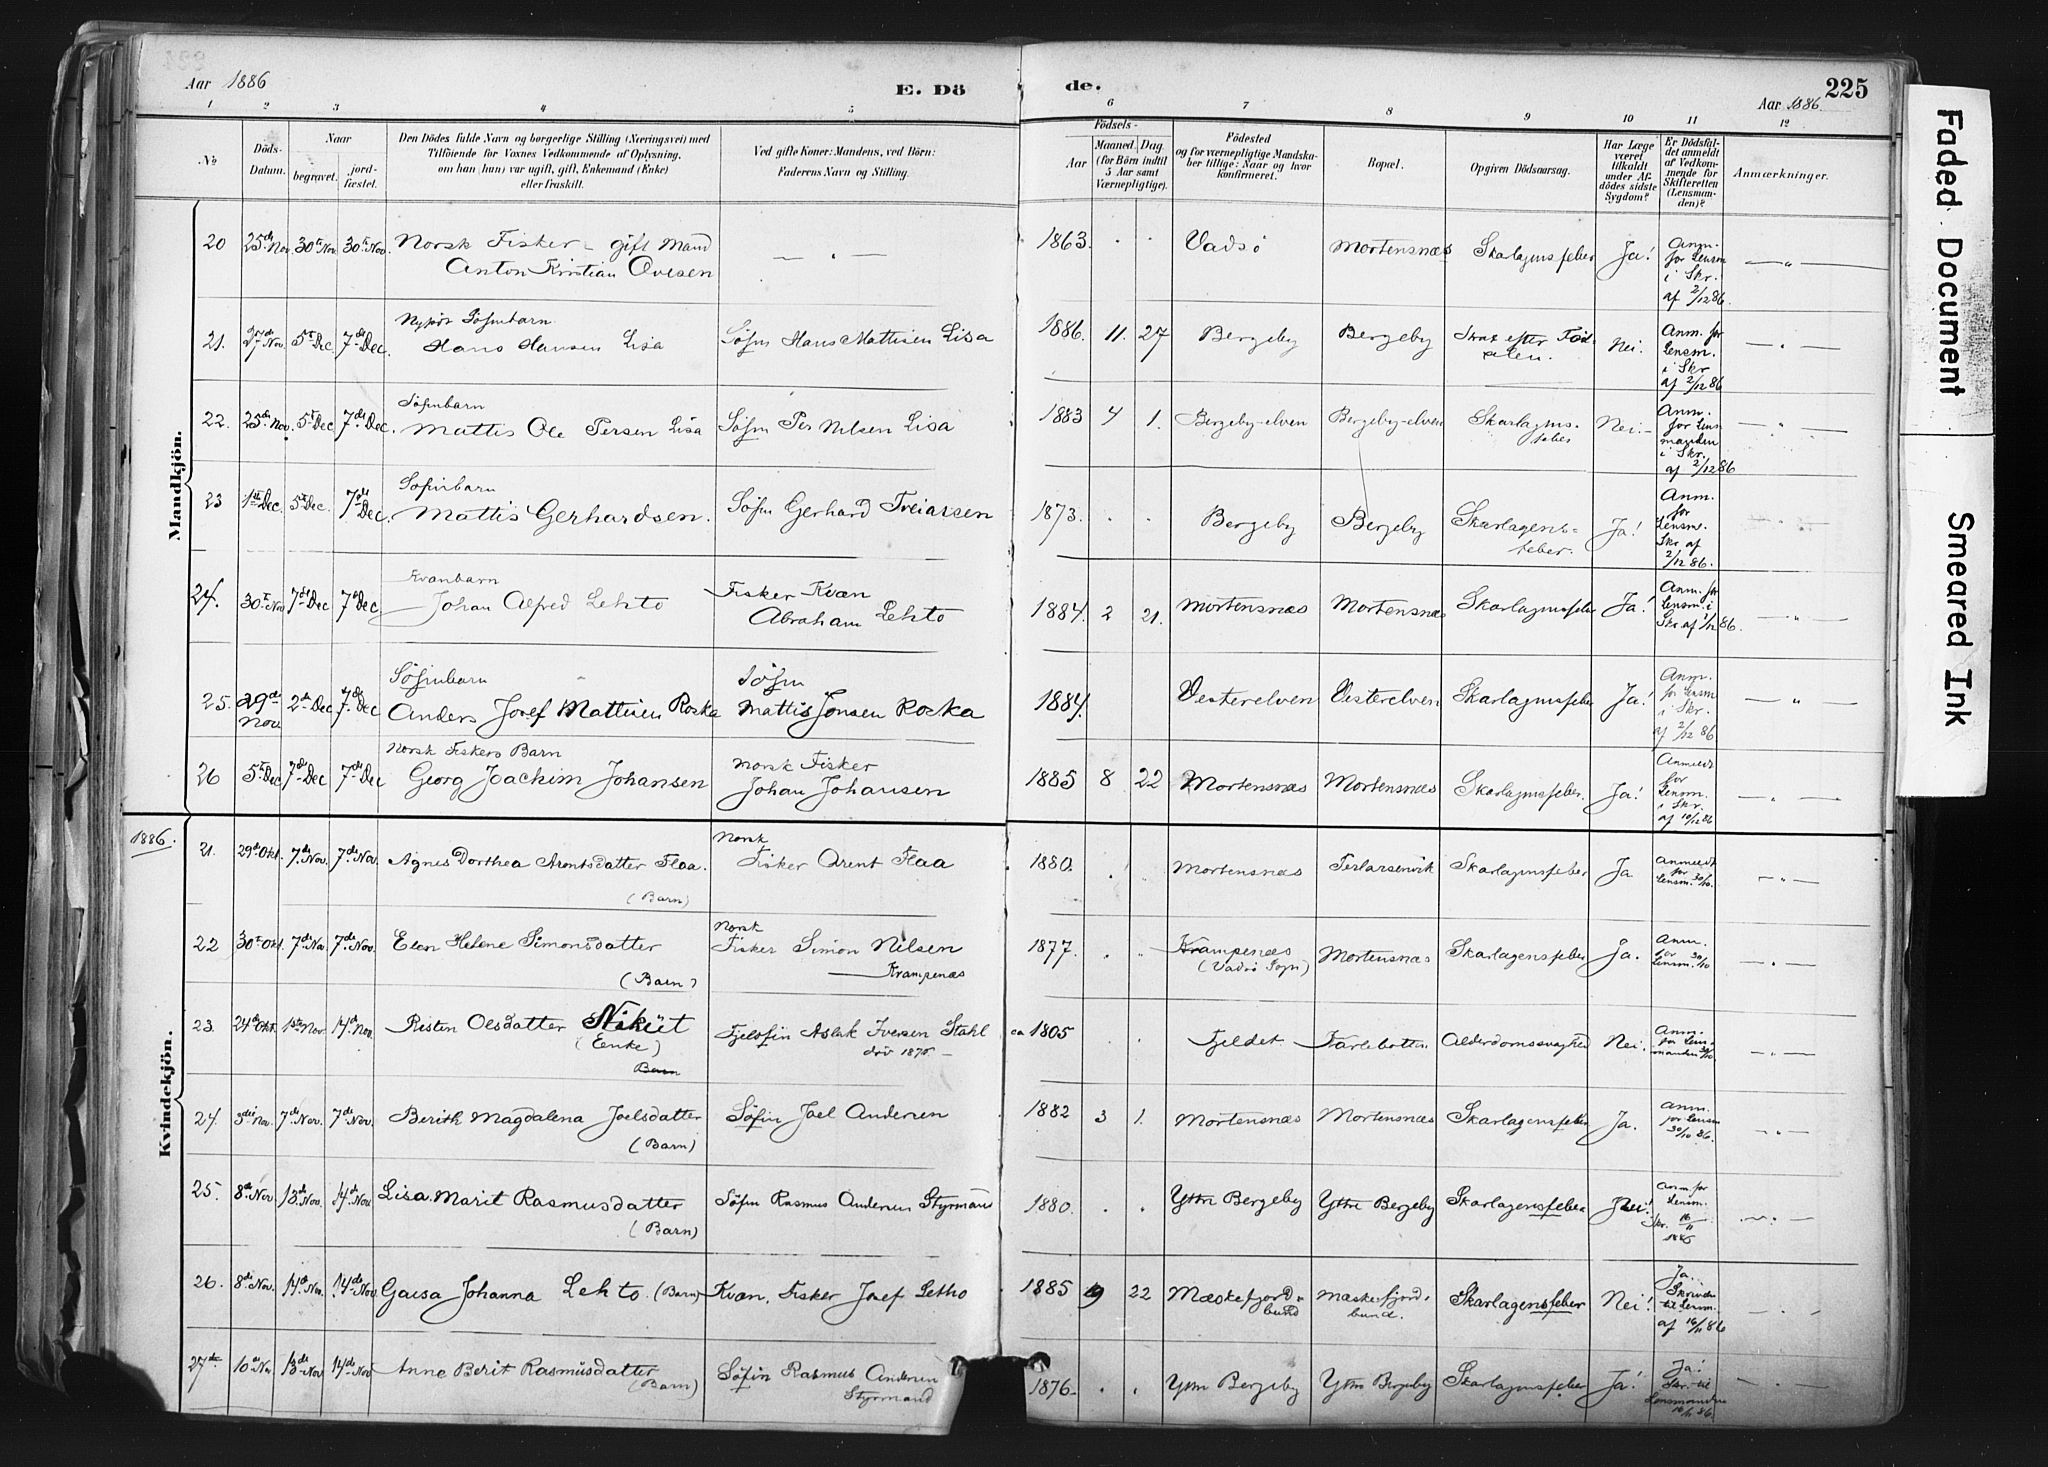 Aar 1886
E. Dö
de.
225
Aar 1886.
1 2 3 4 5 6 7 8 9 10 11 12
No
Döds-Datum.
Naar
begravet.
jord-fæstet.
Den Dödes fulde Navn og borgerlige Stilling (Næringsvei) med
Tilföiende for Voxnes Vedkommende af Oplysning,
om han (hun) var ugift, gift, Enkemand (Enke)
eller fraskilt.
Ved gifte Koner: Mandens, ved Börn:
Faderens Navn og Stilling.
Födsels-
Aar
Maaned.
Dag.
(for Börn indtil
5 Aar samt
Værnepligtige).
Födested
og for værnepligtige Mandska-
ber tillige: Naar og hvor
konfirmeret.
Bopæl.
Opgiven Dödsaarsag.
Har Læge
været
tilkaldt
under Af-
dödes sidste
Sygdom?
Er Dödsfal-
det anmeldt
af Vedkom-
mende for
Skifteretten
(Lensman-
den)?
Anmærkninger.
Mandkjön.
20 25de Nov 30te Nov 30te Nov. Norsk Fisker - gift Mand
Anton Kristian Ovesen — " — 1863. " " Vadsö Mortensnæs Skarlagensfeber Ja! Anm. for Lensm i Skr. af 2/12 86. — " —
21. 27de Nov. 5te Dec 7de Dec.
Hans Hansen Lisa Söfin Hans Mattisen Lisa 1886. 11. 27 Bergeby Bergeby Strax efter Föd-
selen. Nei. Anm. for Lensm. i Skr af 2/12 86 — " —
22. 25de Nov. 5te Dec 7de Dec. Söfinbarn
Mattis Ole Persen Lisa Söfin Per Nilsen Lisa 1883 4 1. Bergeby-elven Bergeby-elven Skarlagens-
feber Nei.- Anm. for Lens manden i Skr. af 2/12 86 — " —
23 1ste Dec. 5te Dec. 7de Dec. Söfinbarn
Mattis Gerhardsen. Söfin Gerhard 1873. " " Bergeby Bergeby Skarlagens-
feber. Ja! Anm. for Lensm. Skr af 2/12 86. — " —
24. 30te Nov 7de Dec 7de Dec Kvanbarn
Johan Alfred Lehto Fisker Kvæn
Abraham Lehto 1884. 2 21. Mortensnæs Mortensnæs Skarlagensfeber Ja! Anm. for Lensm. i Skr. af 1/12 86. — " —
25. 29de Nov 2de Dec 7de Dec Söfinbarn
Anders Josef Mattisen Roska Söfin
Mattis Jonsen Roska 1884. Vesterelven Vesterelven Skarlagensfeber Ja! Anm. for Lensm i Skr. af 2/12 86 — " —
26 5te Dec 7de Dec 7de Dec Norsk Fiskers Barn
Georg Joachim Johansen Norsk Fisker
Johan Johansen 1885 8 22 Mortensnæs Mortensnæs Skarlagensfeber. Ja! Anmeldt for Lensm. i Skr. af 10/12 86 — " —
1886.
Kvindekjön.
21. 29de Okt. 7de Nov. 7de Nov Agnes Dorthea Arentsdatter Flaa.
(Barn) Norsk
Fisker Arent Flaa 1880. " " Mortensnæs Skarlagensfeber Ja Anmeldt for Lensm. 30/10. — " —
22 30te Okt. 7de Nov. 7de Nov. Elen Helene Simonsdatter
(Barn) Norsk
Fisker Simon Nilsen
Krampenæs 1877. " " Krampenæs
(Vadsö Sogn) Mortensnæs Skarlagensfeber Ja. Anm. for Lensm. 30/10 — " —
23. 24de Okt. 1ste Nov. 14de Nov. Risten Olsdatter
(Enke)
Barn Fjelsfin Aslak Iversen Stahl
död 1875 - ca 1805 " " Fjeldet Karlebotten Alderdomssvaghed Nei. Anm. for Lensmanden 30/10. — " —
24. 3die Nov. 7de Nov. 7de Nov. Berith Magdalena Joelsdatter
(Barn) Söfin Joel Andersen 1882 3 1. Mortensnæs Mortensnæs Skarlagensfeber Ja. Anm. for Lensm 30/10 86. — " —
25. 8de Nov. 13de Nov. 14de Nov Lisa Marit Rasmusdatter
(Barn) Söfin Rasmus Andersen Styrmand 1880. " " Ytre Bergeby Ytre Bergeby Skarlagensfeber Anm. for Lensm. Skr. 16/11 1886 — " —
26. 8de Nov. 14de Nov. 14de Nov. Gaisa Johanna Lehto. (Barn) Kvæn. Fisker Josef Letho 1885 9 22 Mæskefjord-
bund Mæskefjord-
bund. Skarlagensfeber Nei! Ja. Skrivelse til Lensm. af 16/11 86 — " —
27de 10de Nov 13de Nov 14de Nov Anne Berit Rasmusdatter
(Barn) Söfin Rasmus Andersen
Styrmand 1876- " " Ytre Bergeby Ytre Bergeby Skarlagensfeber Ja! Ja! Skr. til Lensmanden 16/11 86. — " —
Faded Document
Smeared Ink